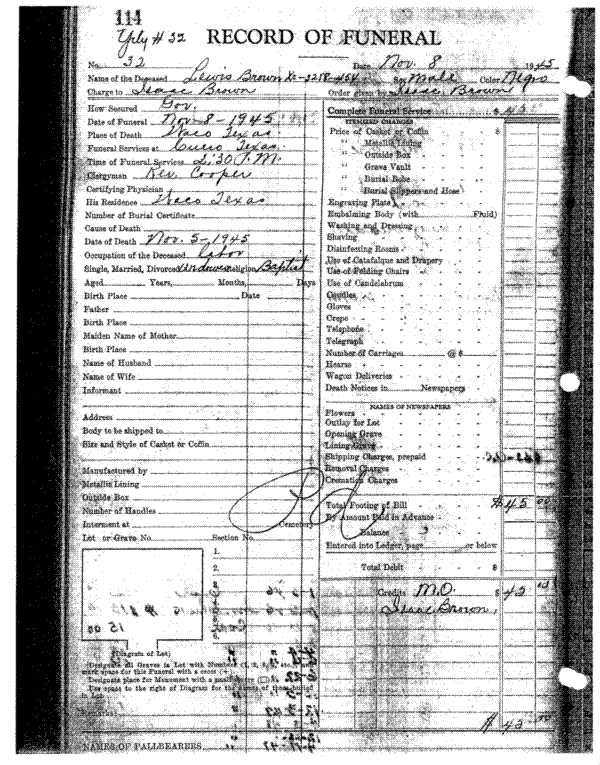 114
Yrly # 32
RECORD OF FUNERAL
No. 32 Date Nov. 8 1945
Name of the Deceased Lewis Brown Sex Male Color Negro
Charge to Isaac Brown Order given by Isaac Brown
How Secured Gov.
Date of Funeral Nov-8-1945
Place of Death Waco Texas
Funeral Services at Cuero Texas
Time of Funeral Services 2:30 P.M.
Clergyman Rev. Cooper
Certifying Physician
His Residence Waco Texas
Number of Burial Certificate
Cause of Death
Date of Death Nov. 5-1945
Occupation of the Deceased Labor
Single, Married, Divorced Religion Baptist
Aged Years, Months, Days
Birth Place Date
Father
Birth Place
Maiden Name of Mother
Birth Place
Name of Husband
Name of Wife
Informant
Address
Body to be shipped to
Size and Style of Casket or Coffin
Manufactured by
Metallic Lining
Outside Box
Number of Handles
Interment at Cemetery
Lot or Grave No. Section No.
1.
2.
(Diagram of Lot)
Designate all Graves in Lot with Numbers 1, 2, 3, etc.
mark space for this Funeral with a cross (+)
Designate place for Monument with a small
Use space to the right of Diagram for the names of those buried
in Lot
NAMES OF PALLBEARERS
Complete Funeral Service $ 45
ITEMIZED CHARGES
Price of Casket or Coffin $
" Metallic Lining
" Outside Box
" Grave Vault
" Burial Robe
" Burial Slippers and Hose
Engraving Plate
Embalming Body (with Fluid)
Washing and Dressing
Shaving
Disinfecting Rooms
Use of Catafalque and Drapery
Use of Folding Chairs
Use of Candelabrum
Candles
Gloves
Crepe
Telephone
Telegraph
Number of Carriages @ $
Hearse
Wagon Deliveries
Death Notices in Newspapers
NAMES OF NEWSPAPERS
Flowers
Outlay for Lot
Opening Grave
Lining Grave
Shipping Charges, prepaid
Removal Charges
Cremation Charges
Total Footing of Bill $45 00
By Amount Paid in Advance
Balance
Entered into Ledger, page or below
Total Debit $
Credits M.O. $ 45 00
Isaac Brown